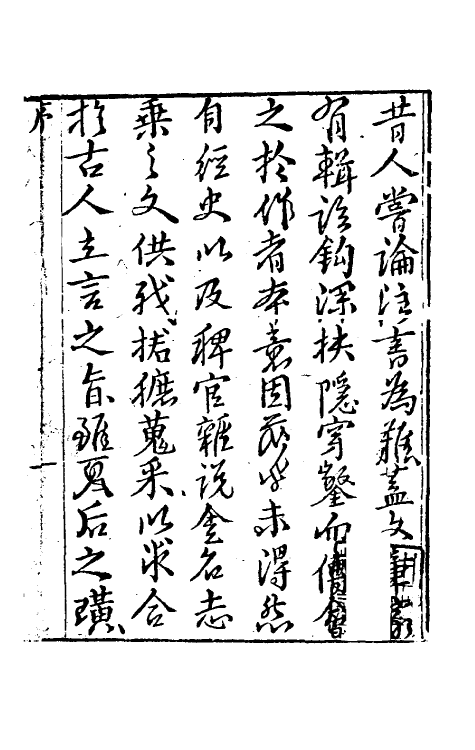 昔人嘗論注書為難蓋文
有輯該鈎深抉隱穿鑿而傅會
之於作者本意固乎未得然
自經史以及稗官雜說金石志
乘之文供我捃摭蒐采以求合
於古人立言之旨雖夏后之璜
序
一